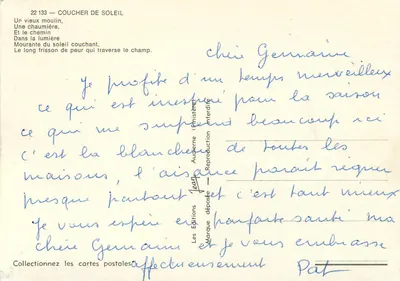 22 133 — COUCHER DE SOLEIL
Un vieux moulin,
Une chaumière,
Et le chemin
Dans la lumière
Mourante du soleil couchant.
Le long frisson de peur qui traverse le champ.
chère Germaine
Je profite d'un temps merveilleux
ce qui est inespéré pour la saison
ce qui me surprend beaucoup ici
c'est la blancheur de toutes les
maisons, l'aisance paraît régner
presque partout et c'est tant mieux
Je vous espère en parfaite santé ma
chère Germaine et je vous embrasse
affectueusement Pat
Les Editions
Marque déposée — Reproduction interdite
Collectionnez les cartes postales